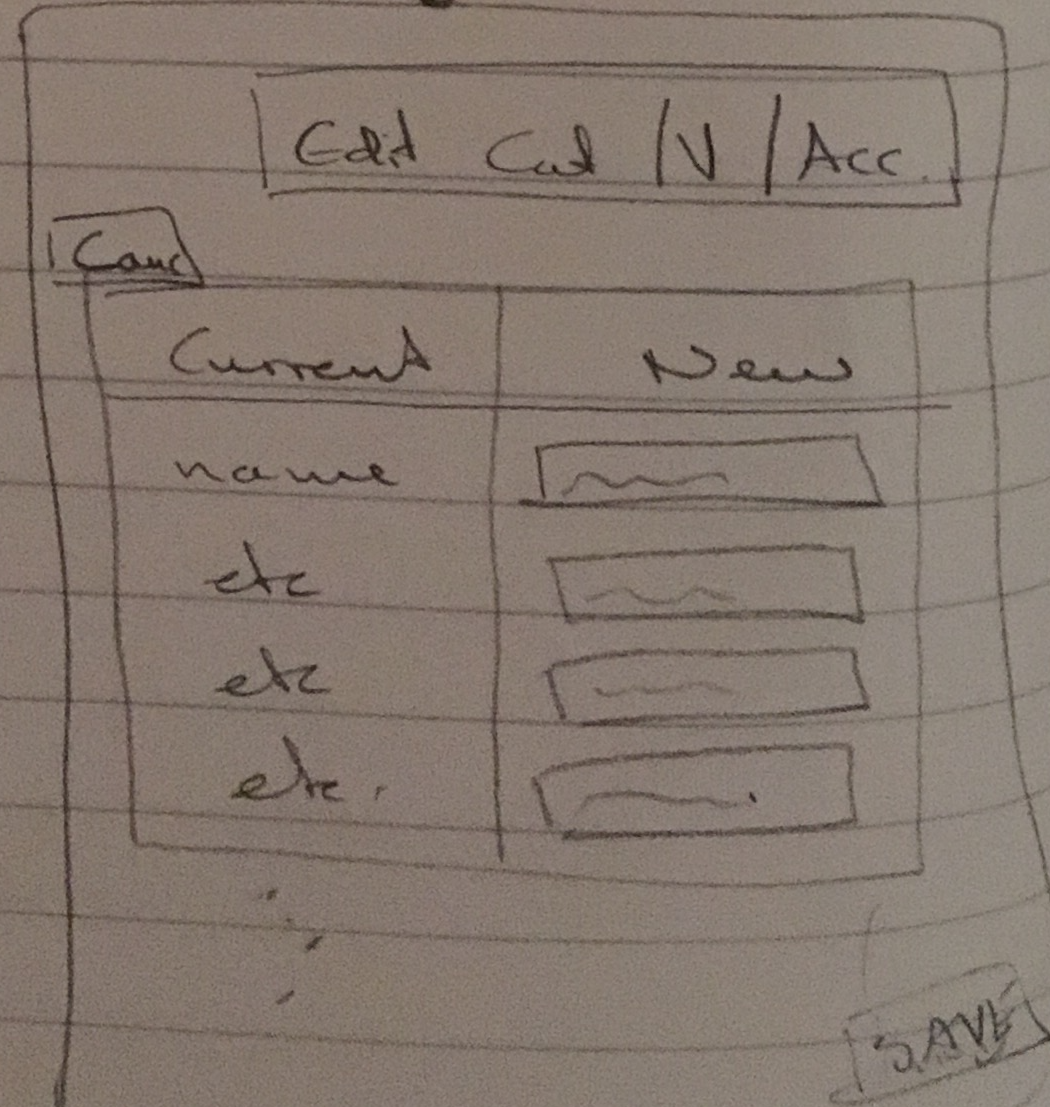 Edit Cat / V / Acc.
Canc
Current New
name
etc
etc
etc.
SAVE